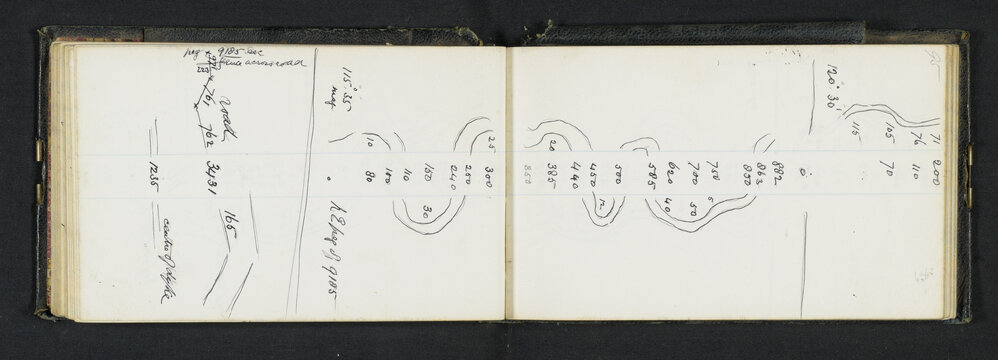 95
71 200
76 110
105 70
115
120° 30'
0
882
863
850
750 5
700 50
620 40
585
500
450 12
440
20 385
350
25 300
250
240
150 30
110
100
10 80
115°.35 mag
N E peg of 9185
peg 9185 sec
fence across road
road 165
761 762 3431
1255 centre of dyke